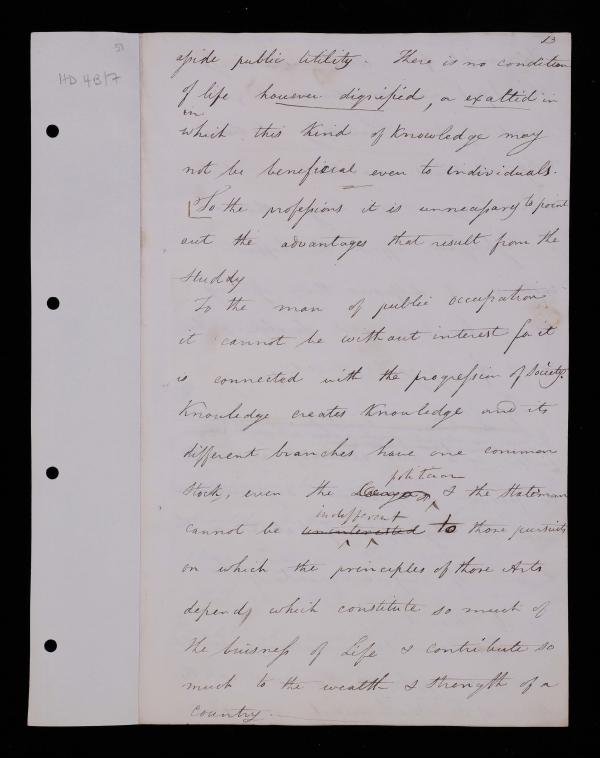 51
HD 4B/7
13
aside public Utility. There is no condition
of life however dignified, or exalted in
in
which this Kind of Knowledge may
not be beneficial even to individuals.
To the professions it is unnecessary to point
out the advantages that result from the
studdy
To the man of public occupation
it cannot be without interest for it
is connected with the progression of Society.
Knowledge creates Knowledge and its
different branches have one common
politician
stock, even the Lawyer & the Statesman
indifferent
cannot be uninterested to those pursuits
on which the principles of those Arts
depends which constitute so much of
the buisness of Life & contribute so
much to the wealth & strength of a
country.